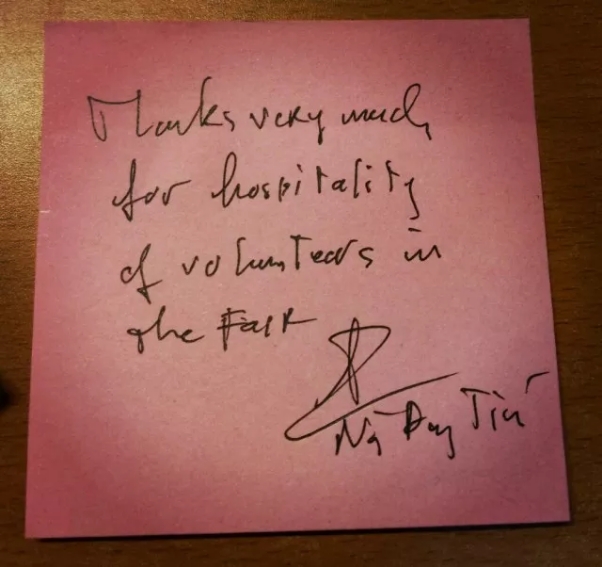 Thanks very much
for hospitality
of volunteers in
the
Duy Tiến